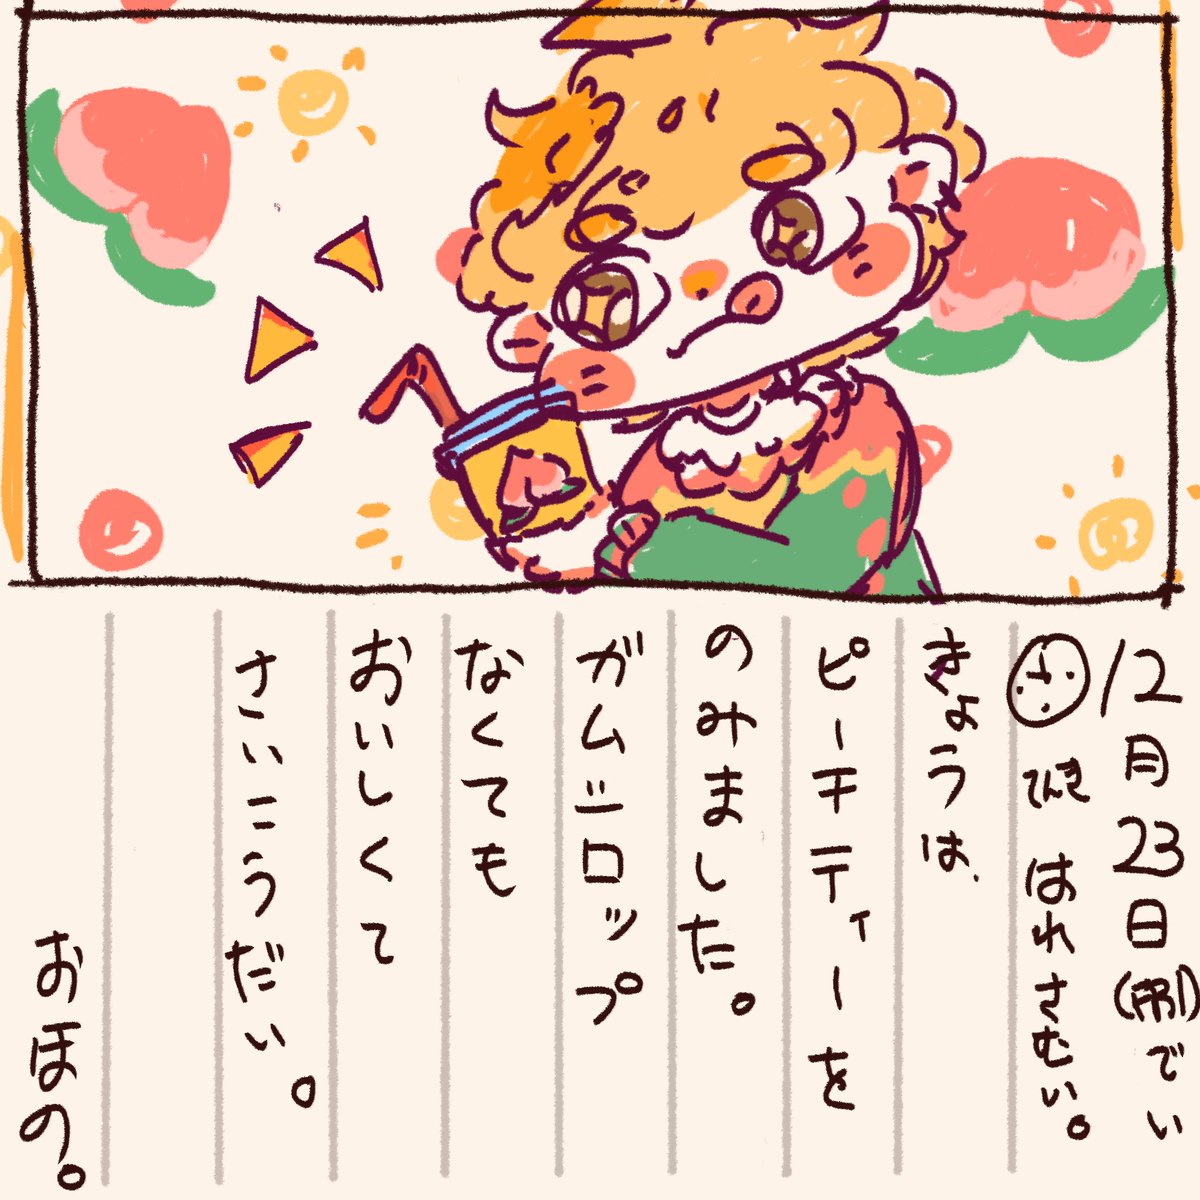 12月23日(祭)でい
てんき はれさむい。
きょうは、
ピーチティーを
のみました。
ガムシロップ
なくても
おいしくて
さいこうだい。
おほの。